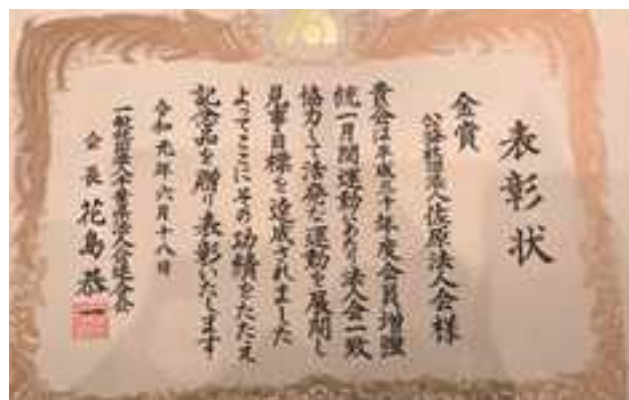 表彰状
金賞
公益社団法人佐原法人会様
貴会は平成三十年度会員増強
統一月間運動にあり法人会一致
協力して活発な運動を展開し
見事目標を達成されました
よってここにその功績をたたえ
記念品を贈り表彰いたします
令和元年六月十八日
一般社団法人千葉県法人会連合会
会長 花島恭一